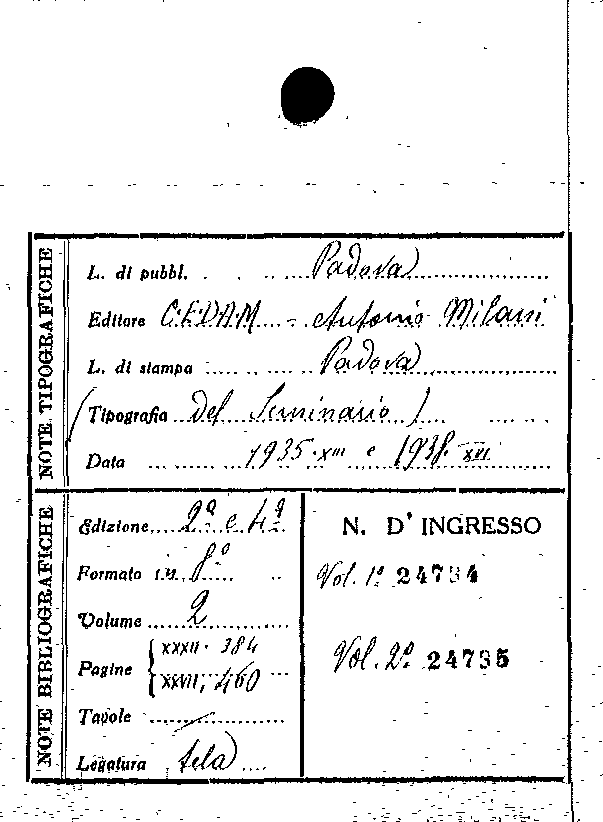 NOTE TIPOGRAFICHE
L. di pubbl. Padova
Editore C.E.D.A.M. - Antonio Milani
L. di stampa Padova
(Tipografia del Seminario)
Data 1935·XIII e 1938·XVI
NOTE BIBLIOGRAFICHE
Edizione 2ª e 4ª
Formato in 8º
Volume 2
Pagine XXXII· 384
XXVII, 460
Tavole
Legatura tela
N. D' INGRESSO
Vol. 1º 24734
Vol. 2º 24735